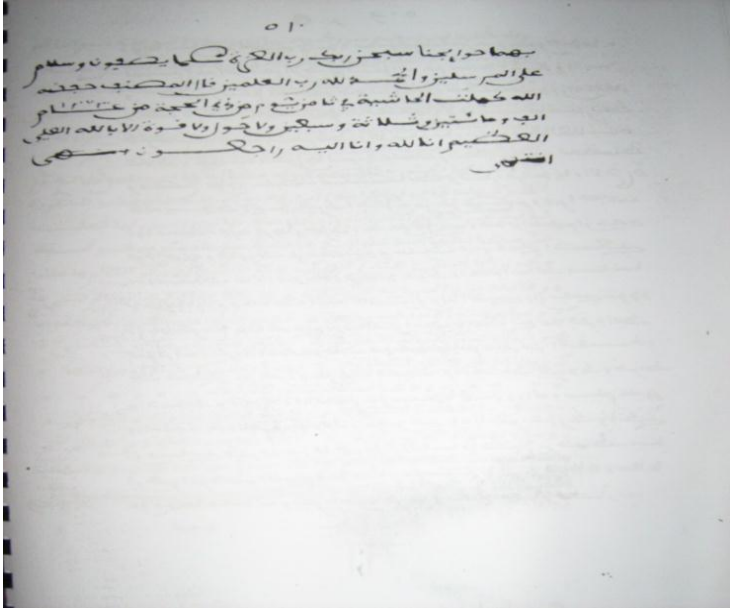 ٥١٠
بهما حوايجنا سبحن ربك رب العزة عما يصفون وسلام
على المرسلين والحمد لله رب العلمين قال المصنف رحمه
الله كملت الحاشية في ثامن يوم من ذي الحجة من عام
الف ومائتين وثلاثة وسبعين ولا حول ولا قوة الا بالله العلي
العظيم انا لله وانا اليه راجعون انتهى
انتهى